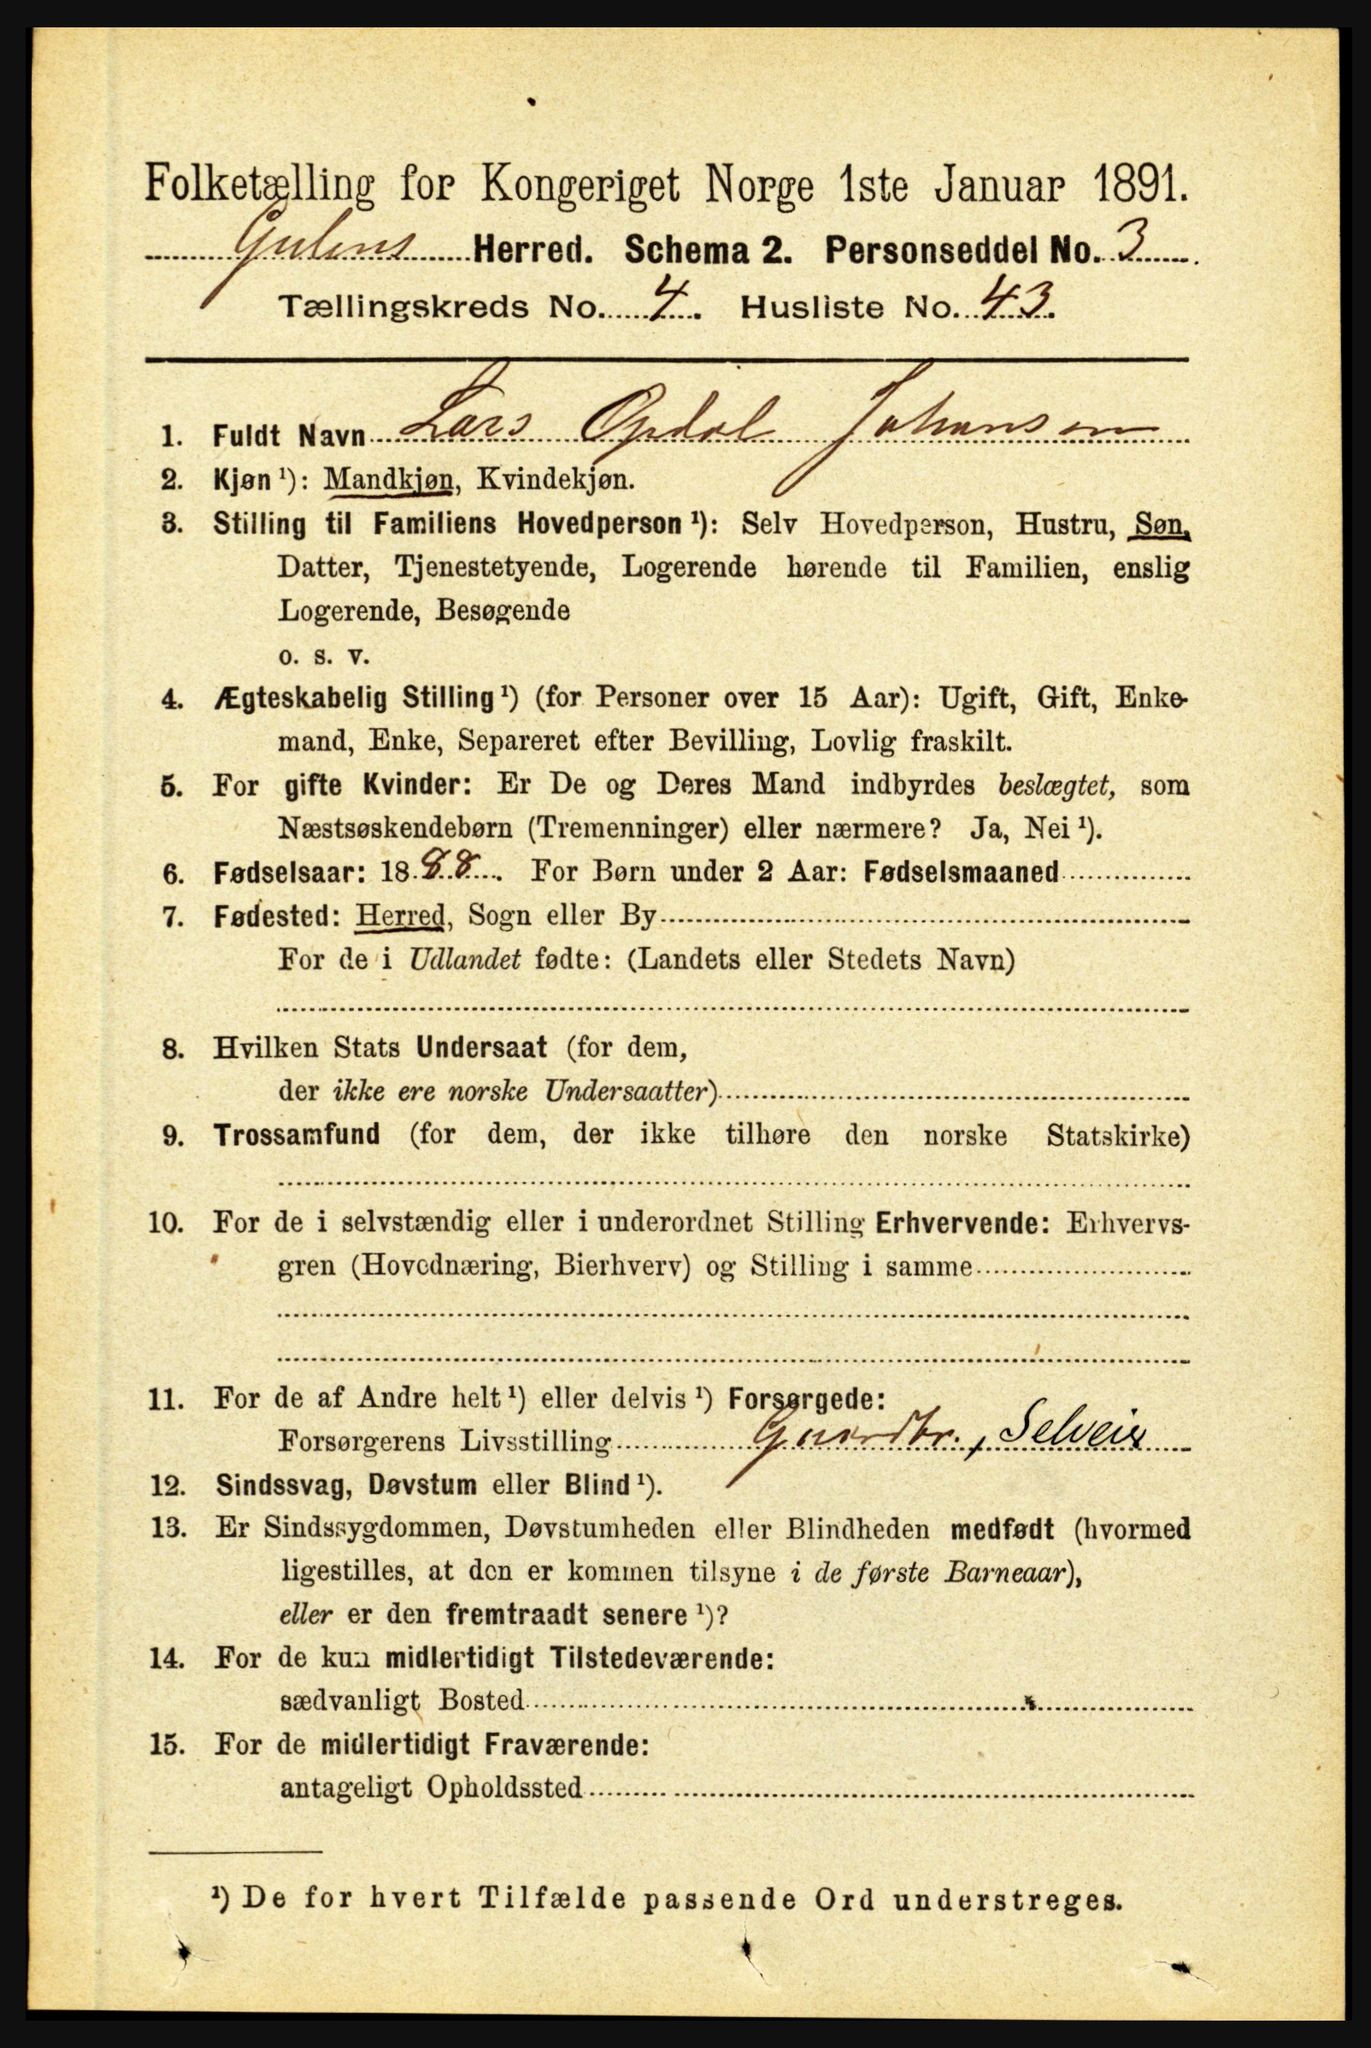 Folketælling for Kongeriget Norge 1ste Januar 1891.
Gulens Herred. Schema 2. Personseddel No. 3
Tællingskreds No. 4. Husliste No. 43.
1. Fuldt Navn Lars Opdal Johansen
2. Kjøn¹): Mandkjøn, Kvindekjøn.
3. Stilling til Familiens Hovedperson¹): Selv Hovedperson, Hustru, Søn,
Datter, Tjenestetyende, Logerende hørende til Familien, enslig
Logerende, Besøgende
o. s. v.
4. Ægteskabelig Stilling¹) (for Personer over 15 Aar): Ugift, Gift, Enke-
mand, Enke, Separeret efter Bevilling, Lovlig fraskilt.
5. For gifte Kvinder: Er De og Deres Mand indbyrdes beslægtet, som
Næstsøskendebørn (Tremenninger) eller nærmere? Ja, Nei¹).
6. Fødselsaar: 1888. For Børn under 2 Aar: Fødselsmaaned
7. Fødested: Herred, Sogn eller By
For de i Udlandet fødte: (Landets eller Stedets Navn)
8. Hvilken Stats Undersaat (for dem,
der ikke ere norske Undersaatter)
9. Trossamfund (for dem, der ikke tilhøre den norske Statskirke)
10. For de i selvstændig eller i underordnet Stilling Erhvervende: Erhvervs-
gren (Hovednæring, Bierhverv) og Stilling i samme
11. For de af Andre helt¹) eller delvis¹) Forsørgede:
Forsørgerens Livsstilling Gaardbr., Selveier
12. Sindssvag, Døvstum eller Blind¹).
13. Er Sindssygdommen, Døvstumheden eller Blindheden medfødt (hvormed
ligestilles, at den er kommen tilsyne i de første Barneaar),
eller er den fremtraadt senere¹)?
14. For de kun midlertidigt Tilstedeværende:
sædvanligt Bosted
15. For de midlertidigt Fraværende:
antageligt Opholdssted
¹) De for hvert Tilfælde passende Ord understreges.